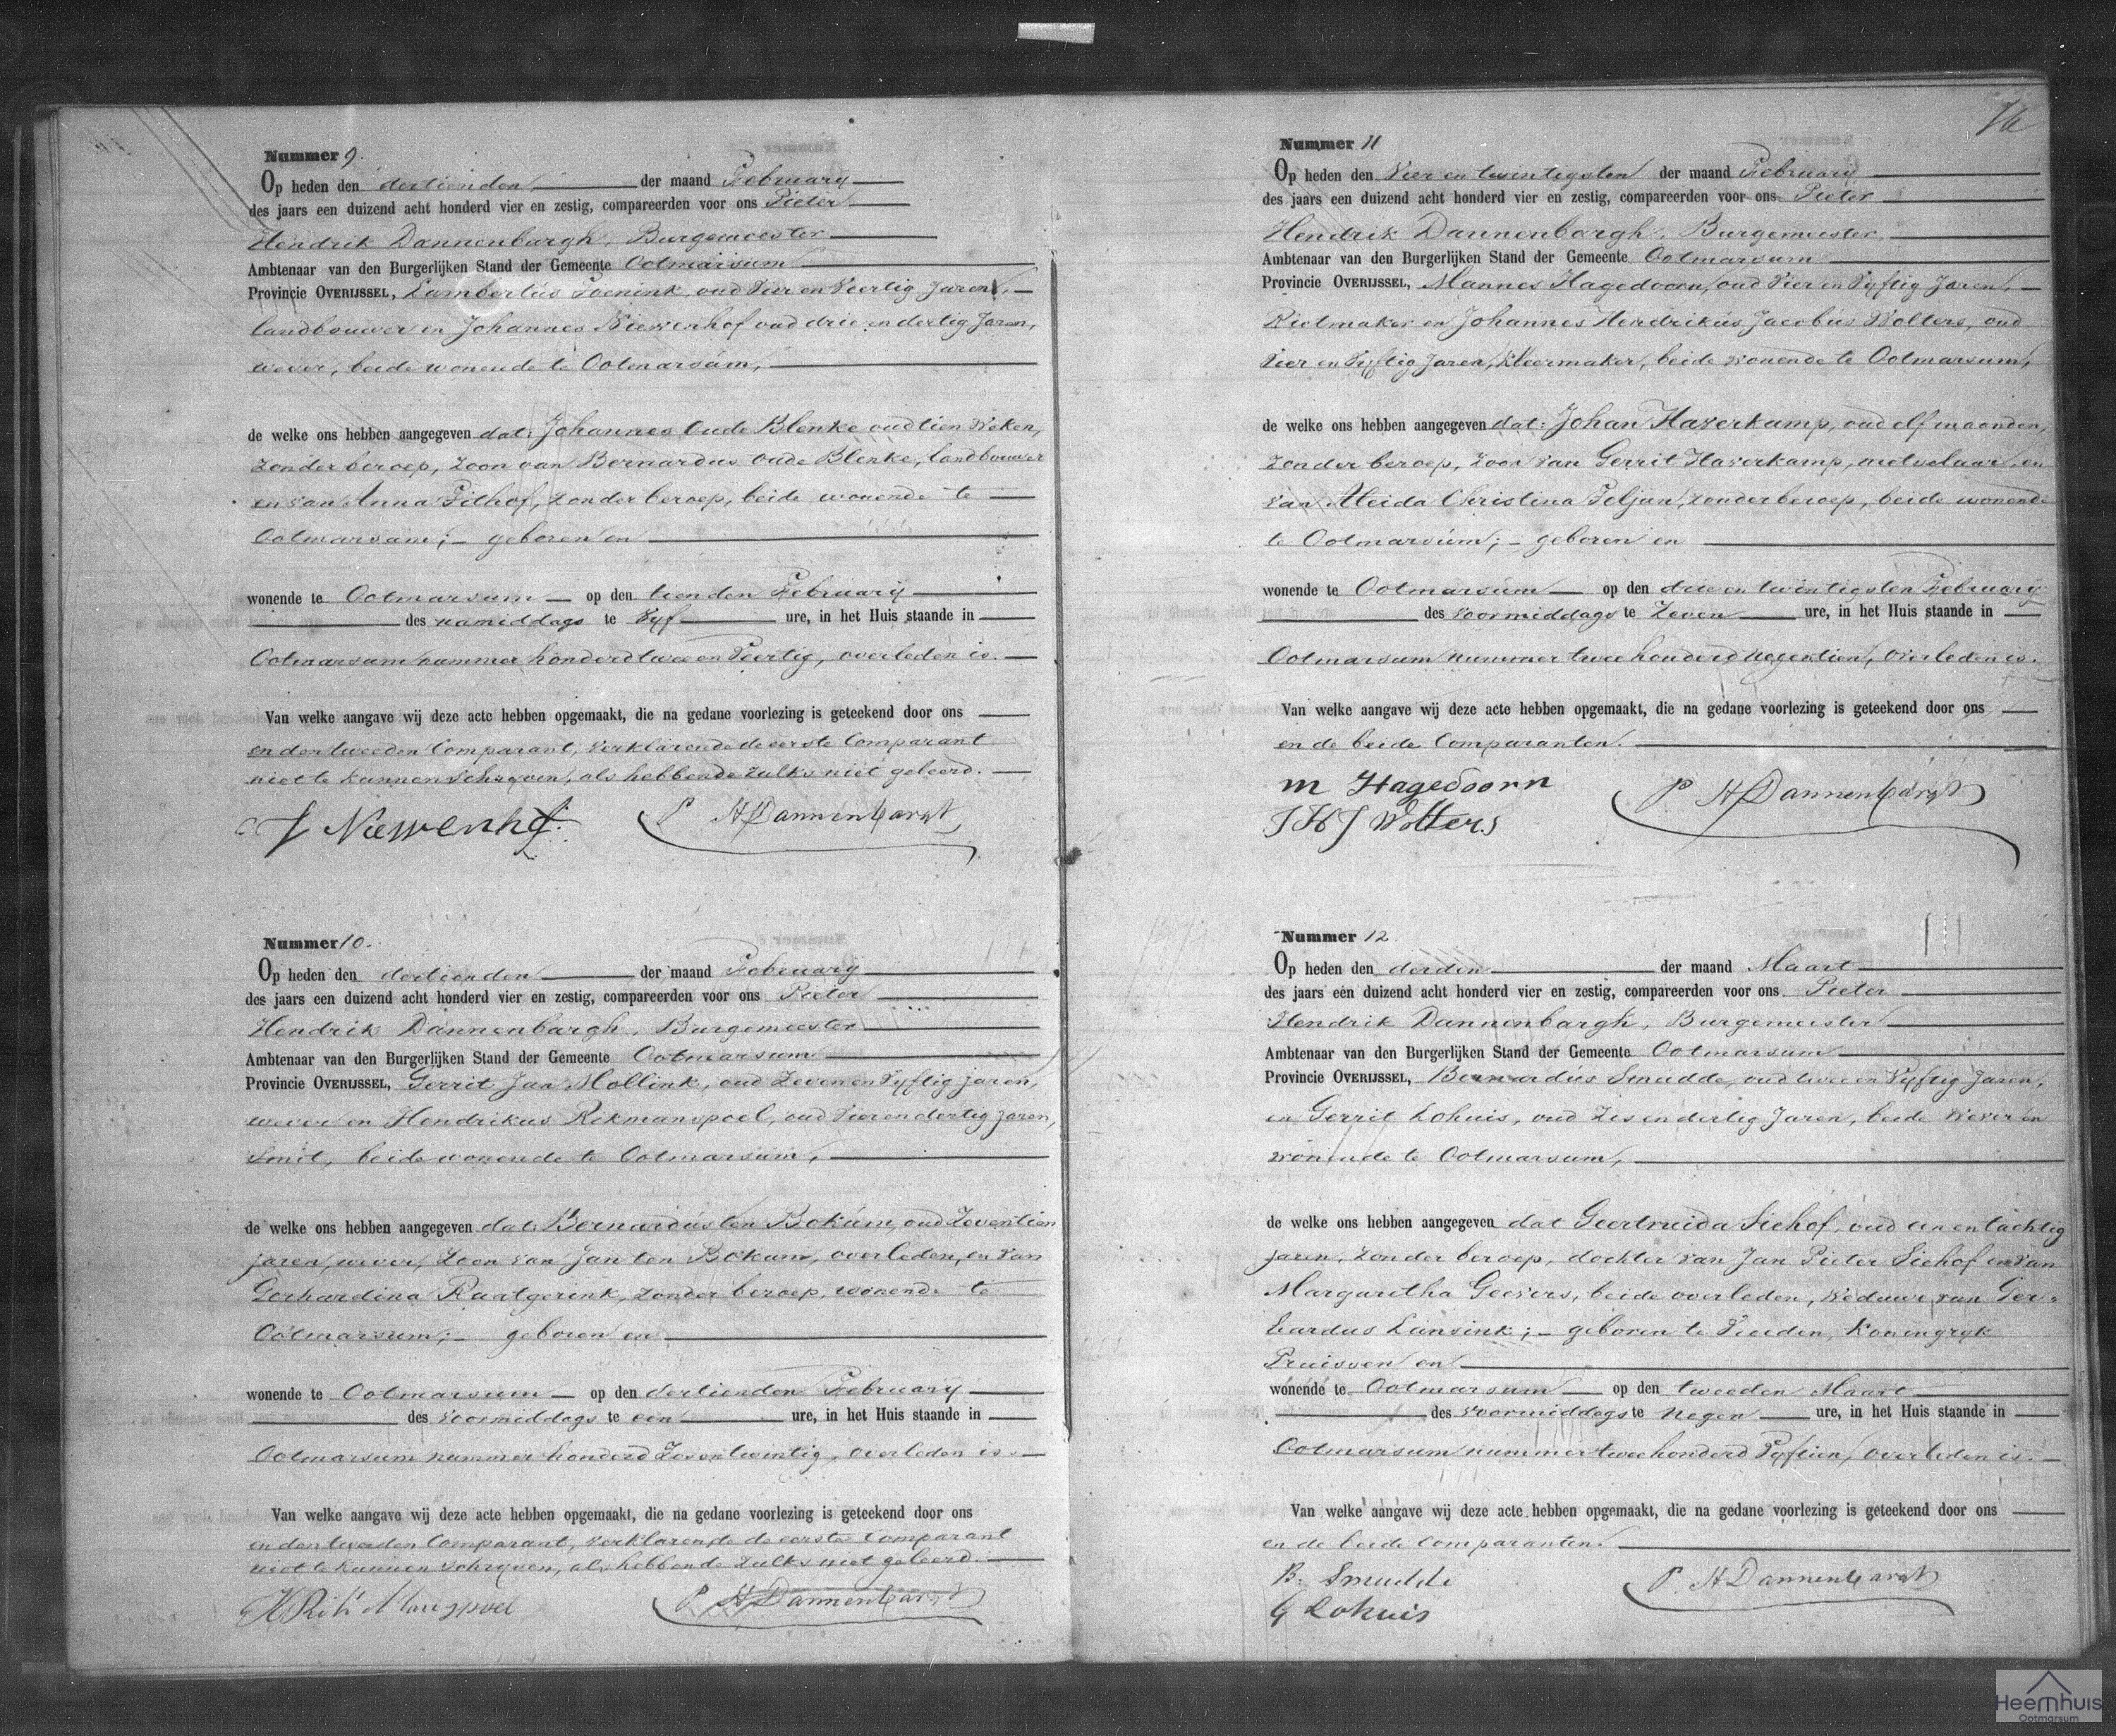 Nummer 9.
Op heden den dertienden der maand February
des jaars een duizend acht honderd vier en zestig, compareerden voor ons Pieter
Hendrik Dannenbargh, Burgemeester
Ambtenaar van den Burgerlijken Stand der Gemeente Ootmarsum
Provincie OVERIJSSEL, Lambertus oud Vier en Veertig Jaren,
landbouwer en Johannes Niewenhof oud drie en dertig Jaren,
wever, beide wonende te Ootmarsum,
de welke ons hebben aangegeven dat: Johannes Oude Blenke oud tien Weken,
zonder beroep, Zoon van Bernardus oude Blenke, landbouwer
en van Anna zonder beroep, beide wonende te
Ootmarsum; – geboren en
wonende te Ootmarsum op den tienden February
des namiddags te Vyf ure, in het Huis staande in
Ootmarsum nummer honderd twee en Veertig, overleden is.
Van welke aangave wij deze acte hebben opgemaakt, die na gedane voorlezing is geteekend door ons
en den tweeden Comparant, verklarende de eerste Comparant
niet te kunnen schryven, als hebbende zulks niet geleerd.
J Niewenhof. P H Dannenbargh
Nummer 10.
Op heden den dertienden der maand February
des jaars een duizend acht honderd vier en zestig, compareerden voor ons Pieter
Hendrik Dannenbargh, Burgemeester
Ambtenaar van den Burgerlijken Stand der Gemeente Ootmarsum
Provincie OVERIJSSEL, Gerrit Jan Mollink, oud Zeven en Vyftig jaren,
wever en Hendrikus Rikmanspoel, oud Vier en dertig jaren,
Smit, beide wonende te Ootmarsum,
de welke ons hebben aangegeven dat Bernardus ten Bokum, oud Zeventien
jaren, wever, Zoon van Jan ten Bokum, overleden, en van
Gerhardina Raatgerink, zonder beroep, wonende te
Ootmarsum; – geboren en
wonende te Ootmarsum op den dertienden February
des voormiddags te een ure, in het Huis staande in
Ootmarsum nummer honderd Zes en twintig, overleden is.
Van welke aangave wij deze acte hebben opgemaakt, die na gedane voorlezing is geteekend door ons
en den tweeden Comparant, verklarende de eerste Comparant
niet te kunnen schryven, als hebbende zulks niet geleerd.
H Rikmanspoel P H Dannenbargh
Nummer 11
Op heden den Vier en twintigsten der maand February
des jaars een duizend acht honderd vier en zestig, compareerden voor ons Pieter
Hendrik Dannenbargh, Burgemeester
Ambtenaar van den Burgerlijken Stand der Gemeente Ootmarsum
Provincie OVERIJSSEL, Mannes Hagedoorn, oud Vier en Vyftig Jaren,
Rietmaker en Johannes Hendrikus Jacobus Wolters, oud
Vier en Vyftig Jaren, Kleermaker, beide wonende te Ootmarsum,
de welke ons hebben aangegeven dat: Johan Haverkamp, oud elf maanden,
zonder beroep, Zoon van Gerrit Haverkamp, metselaar, en
van Aleida Christina Teljan, zonder beroep, beide wonende
te Ootmarsum; – geboren en
wonende te Ootmarsum op den drie en twintigsten February
des voormiddags te Zeven ure, in het Huis staande in
Ootmarsum nummer twee honderd negentien, overleden is.
Van welke aangave wij deze acte hebben opgemaakt, die na gedane voorlezing is geteekend door ons
en de beide Comparanten.
M Hagedoorn P H Dannenbargh
J H J Wolters
Nummer 12
Op heden den derden der maand Maart
des jaars een duizend acht honderd vier en zestig, compareerden voor ons Pieter
Hendrik Dannenbargh, Burgemeester
Ambtenaar van den Burgerlijken Stand der Gemeente Ootmarsum
Provincie OVERIJSSEL, Bernardus Smudde, oud twee en Vyftig Jaren,
en Gerrit Lohuis, oud Zes en dertig Jaren, beide Wever en
wonende te Ootmarsum,
de welke ons hebben aangegeven dat Geertruida Siehof, oud een en tachtig
jaren, zonder beroep, dochter van Jan Pieter Siehof en van
Margaretha Geevers, beide overleden, Weduwe van Ger-
hardus Lansink; – geboren te Koningryk
Pruissen en
wonende te Ootmarsum op den tweeden Maart
des voormiddags te negen ure, in het Huis staande in
Ootmarsum nummer twee honderd Vyftien, overleden is.
Van welke aangave wij deze acte hebben opgemaakt, die na gedane voorlezing is geteekend door ons
en de beide Comparanten.
B. Smudde P H Dannenbargh
G Lohuis
Heemhuis
Ootmarsum